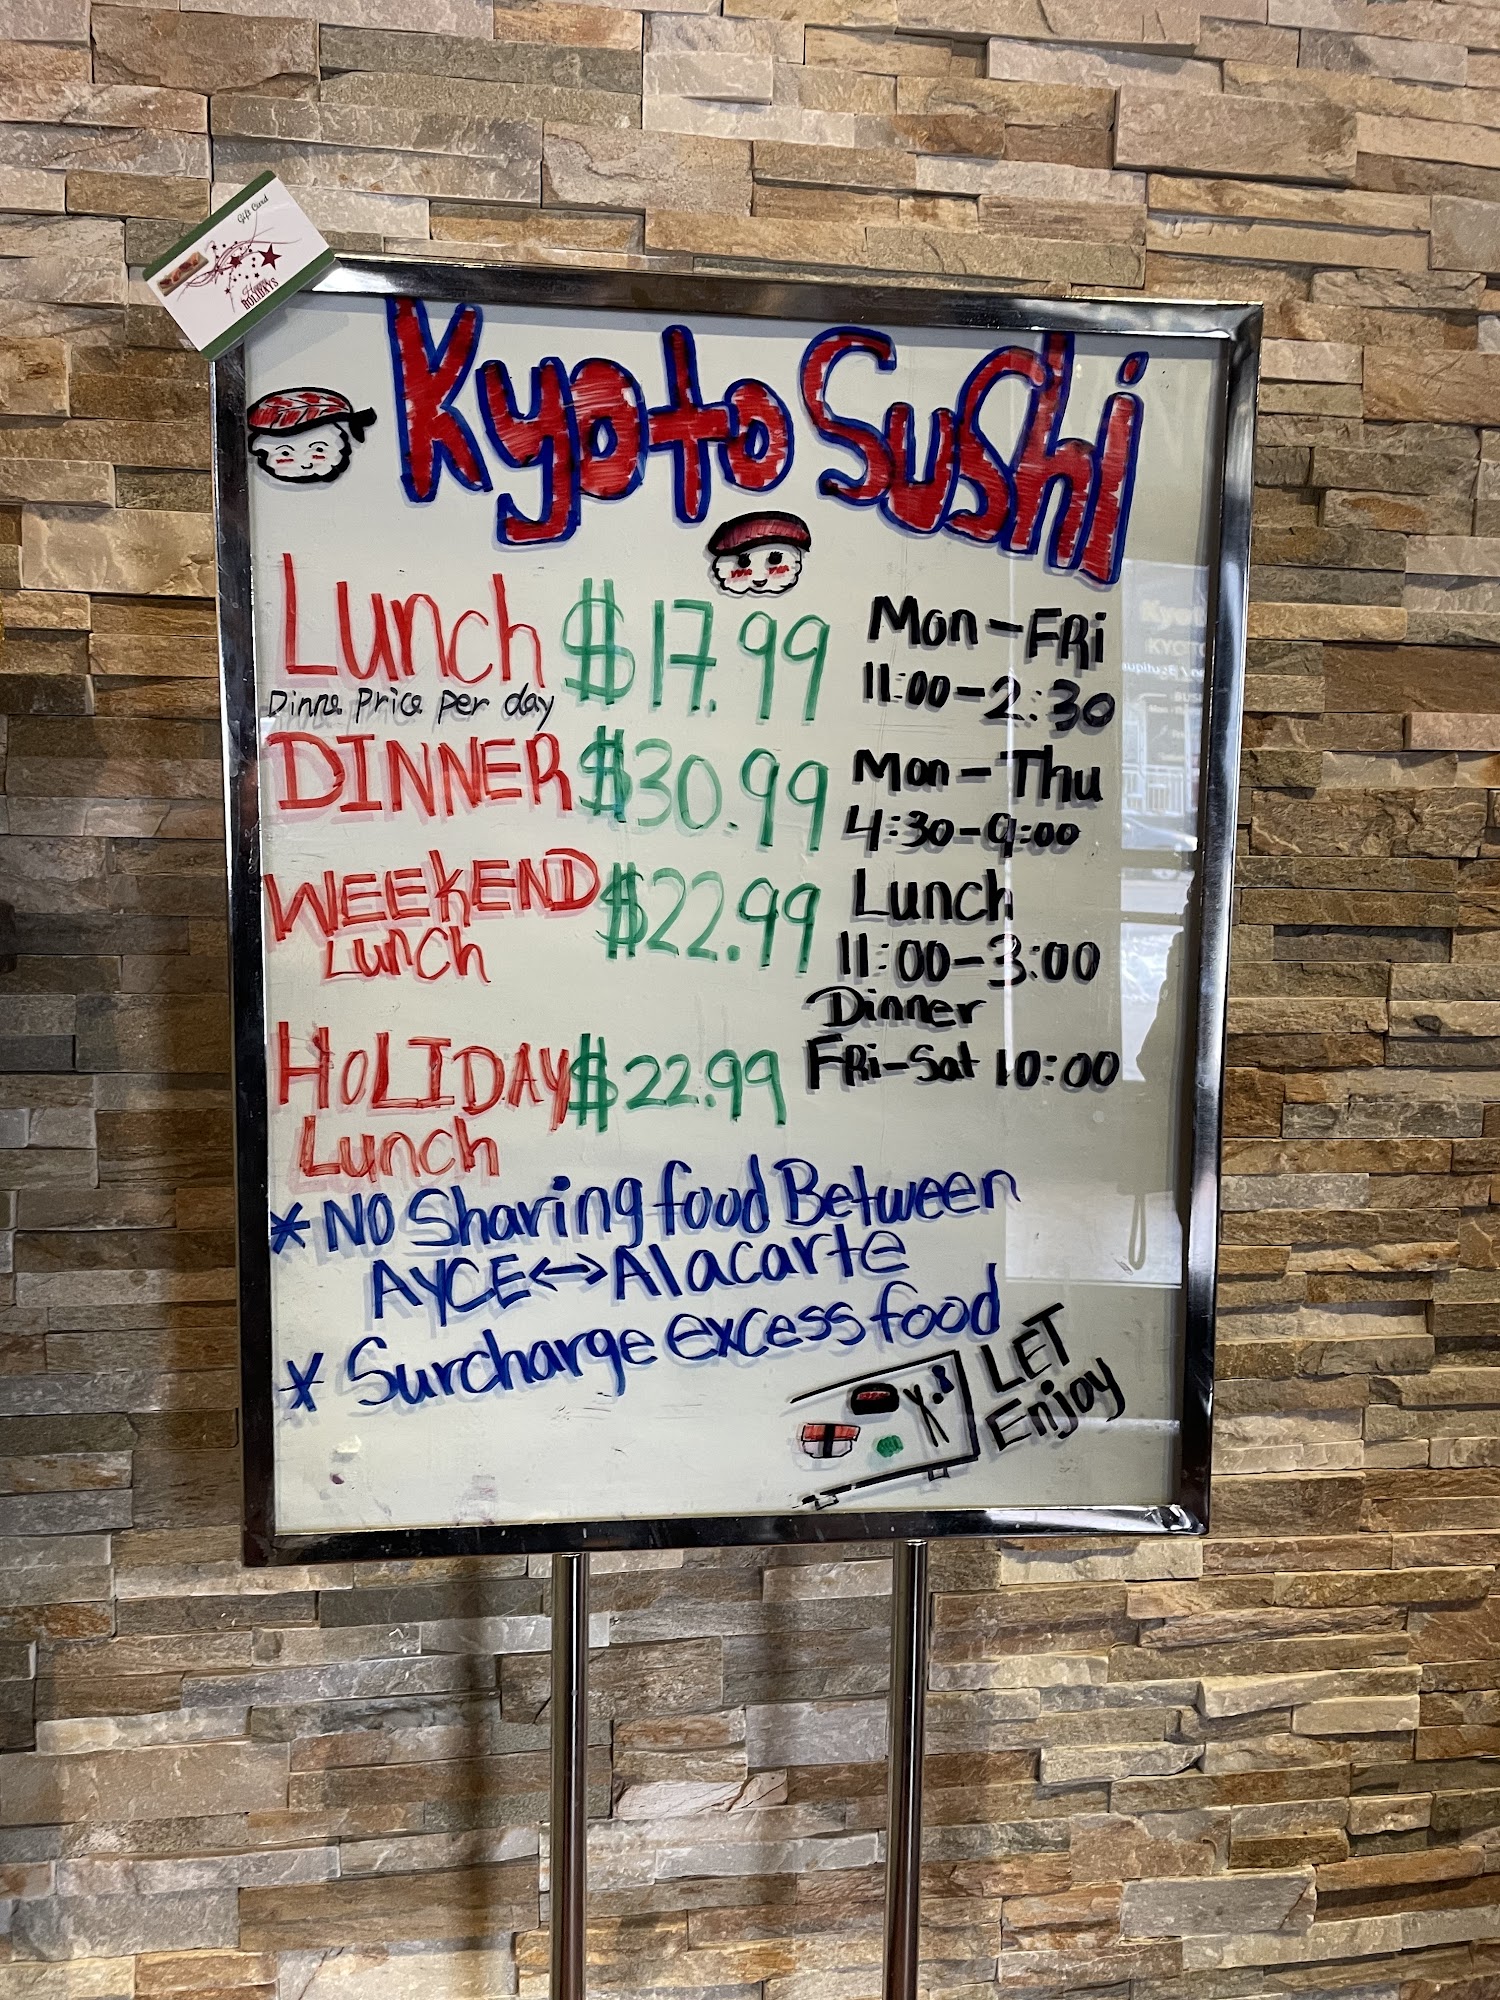 Gift Card
Happy
HOLIDAYS
Kyoto Sushi
Lunch $17.99 Mon-FRi
11:00-2:30
Dinne Price per day
DINNER $30.99 Mon-Thu
4:30-9:00
WEEKEND $22.99 Lunch
Lunch 11:00-3:00
Dinner
HOLIDAY $22.99 FRi-Sat 10:00
Lunch
* NO Sharing food Between
AYCE <-> Alacarte
* Surcharge excess food
LET
Enjoy